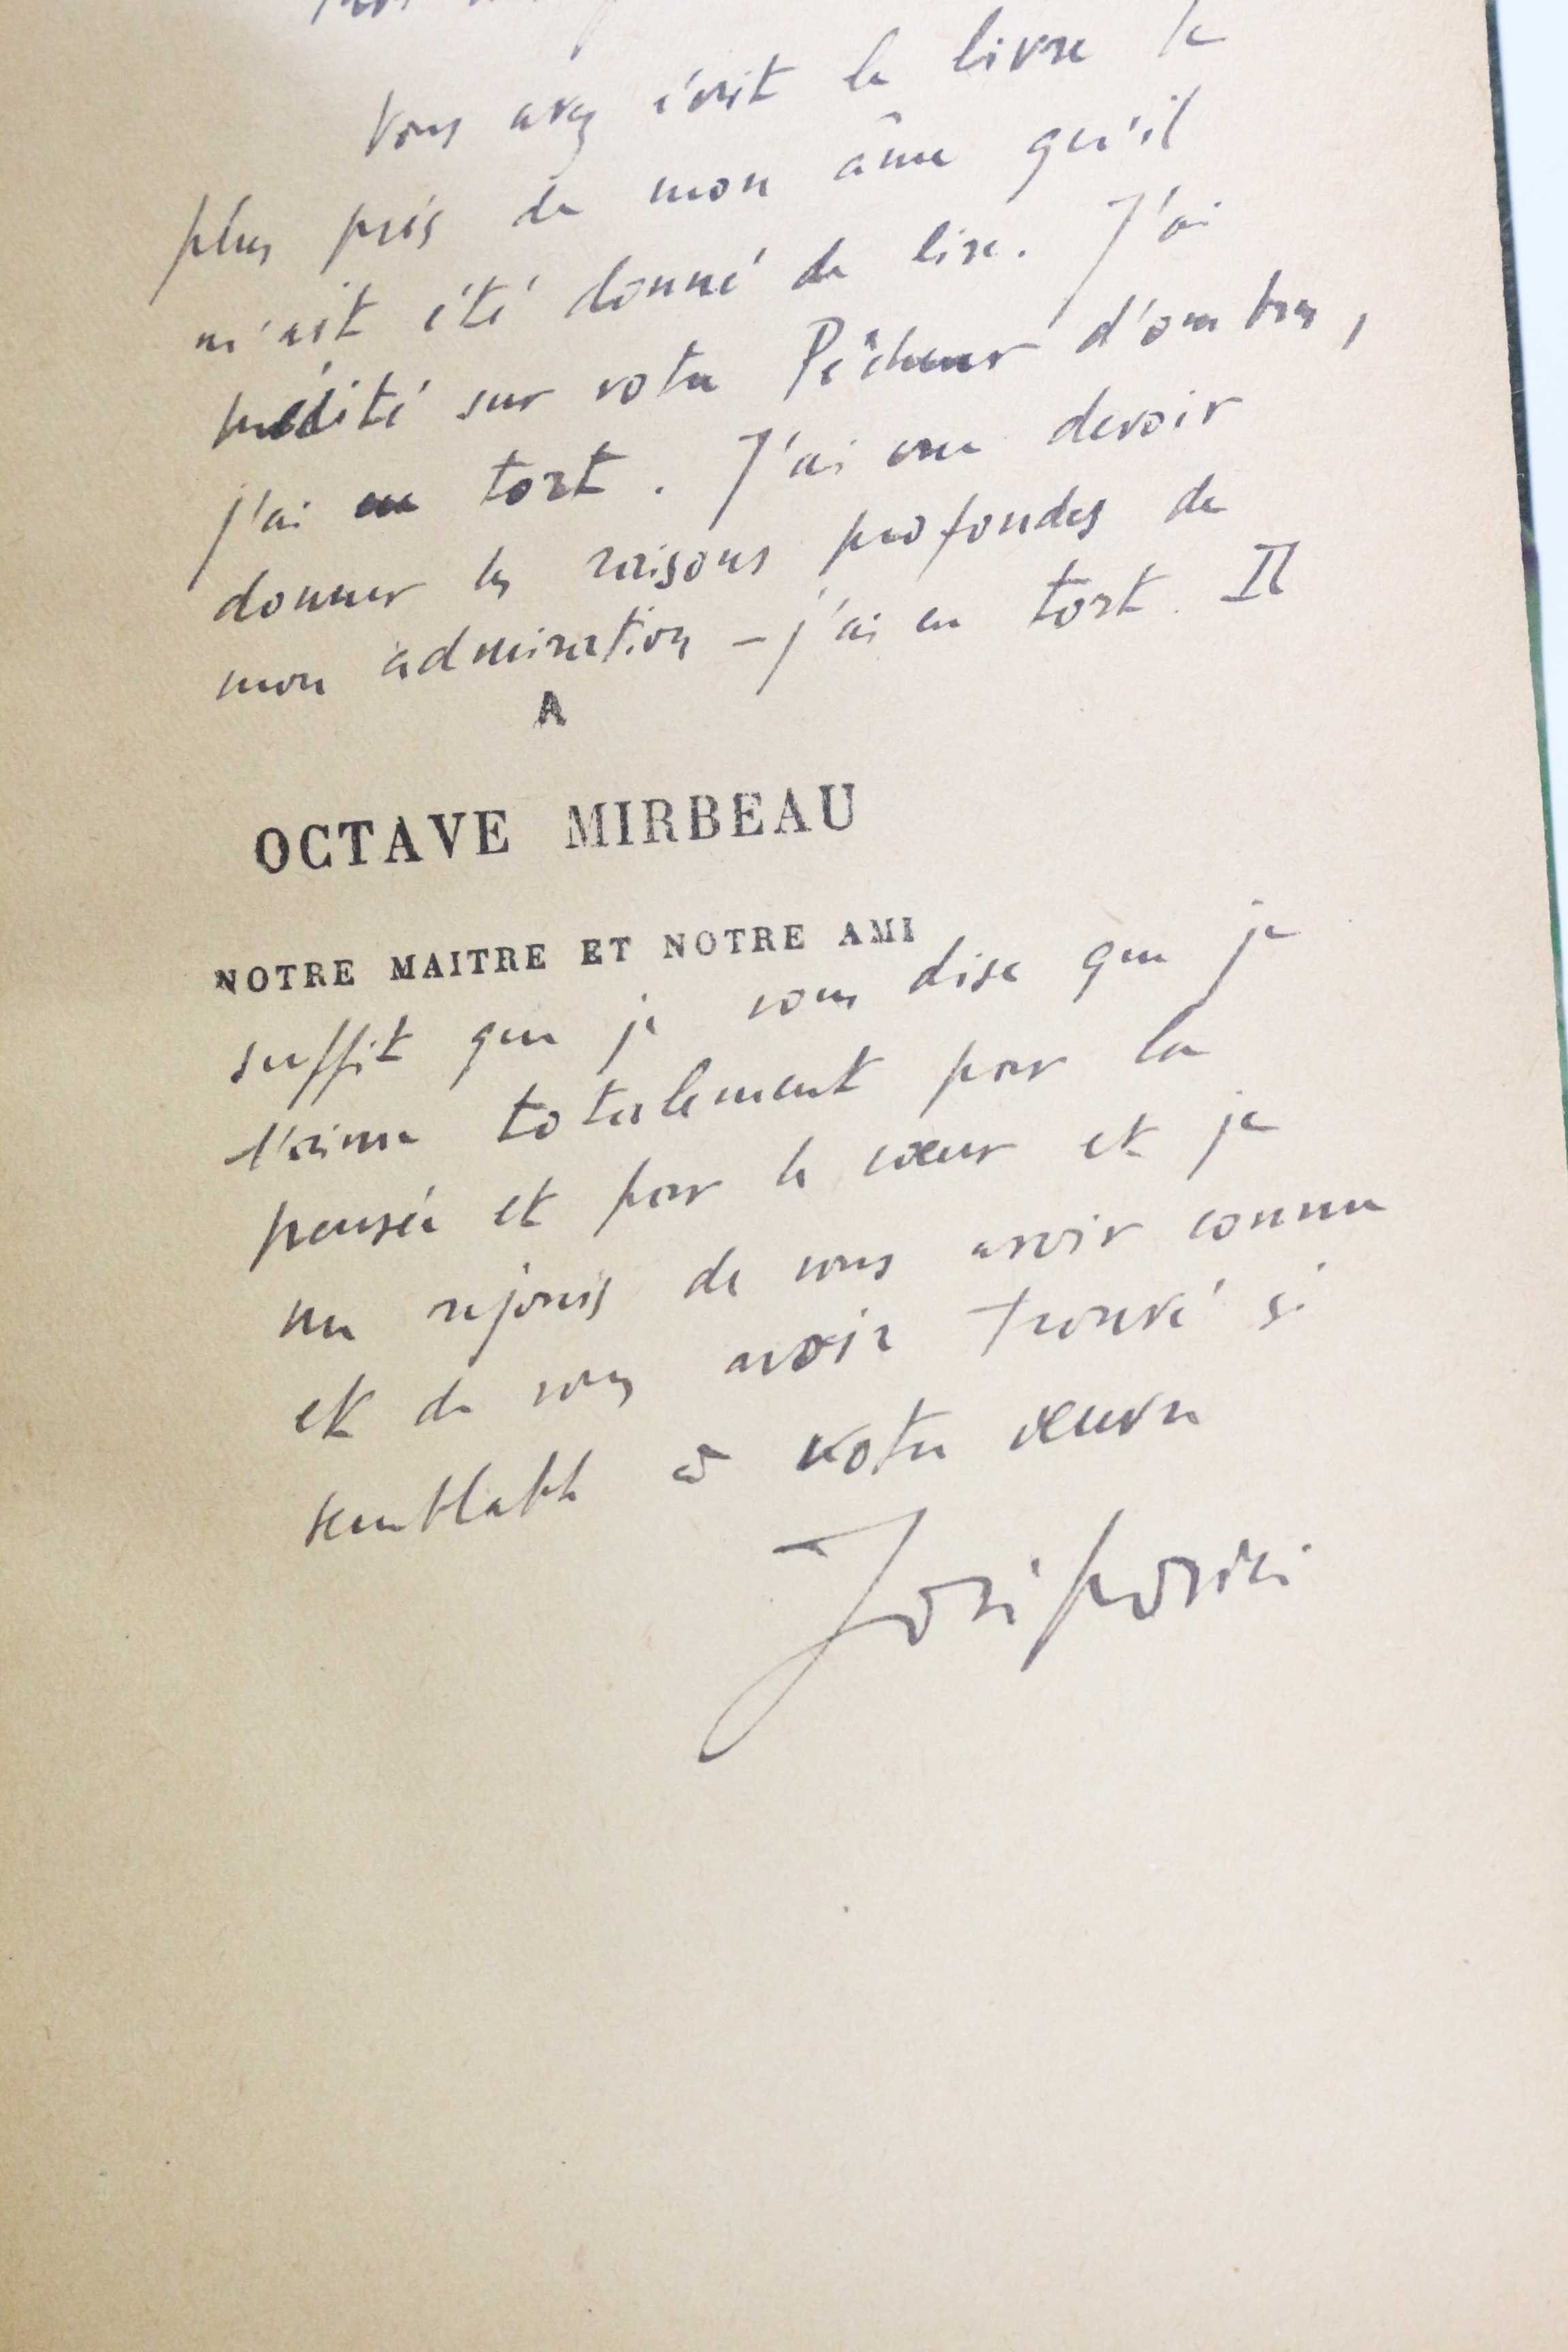 Vous avez écrit le livre le
plus près de mon âme qu'il
m'ait été donné de lire. J'ai
médité sur votre Pêcheur d'ombres,
j'ai eu tort. J'ai cru devoir
donner les raisons profondes de
mon admiration – j'ai eu tort. Il
A
OCTAVE MIRBEAU
NOTRE MAITRE ET NOTRE AMI
suffit que je vous dise que je
l'aime totalement par la
pensée et par le cœur et je
me réjouis de vous avoir connu
et de vous avoir trouvé si
semblable à votre œuvre
Josipovici